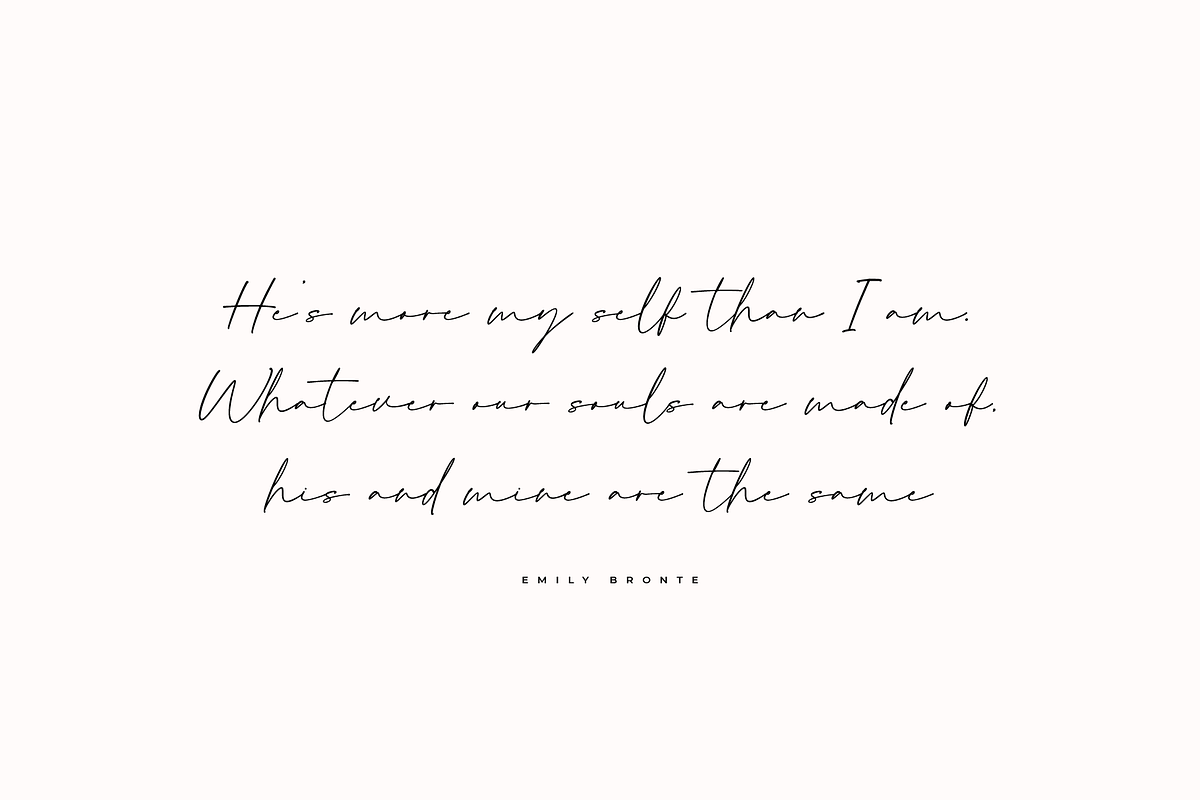 He's more my self than I am.
Whatever our souls are made of.
his and mine are the same
EMILY BRONTE